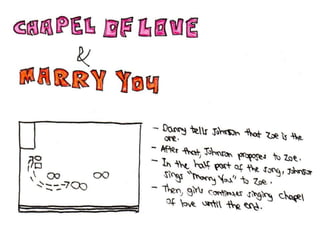 CHAPEL OF LOVE
&
MARRY YOU
- Danny tells Johnson that Zoe is the
one.
- After that, Johnson proposes to Zoe.
- In the half part of the song, Johnson
sings "Marry You" to Zoe.
- Then, girls continues singing Chapel
of love until the end.